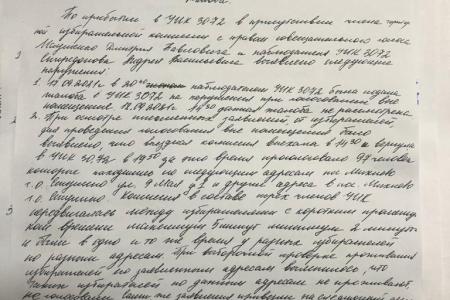 По прибытии в УИК 3072 в присутствии члена
ной избирательной комиссии с правом совещательного голоса
Дмитрия Павловича и наблюдателя УИК 3072
Спиридонова Андрея Васильевича выявлено следующие
нарушения:
1. 17.09.2021г. в 20 наблюдателями УИК 3072 была подана
жалоба в УИК 3072 на нарушения при голосовании вне
помещения 17.09.2021г. данная жалоба не рассмотрена
2. При осмотре письменных заявлений от избирателей,
для проведения голосования вне помещения было
выявлено, что выездная комиссия выехала в 14 30 и вернулась
в УИК 3072 в 19 50 за это время проголосовало человек
которые находились по следующим адресам пос. Михнево
г.о. Ступино ул. 9 Мая д. 1 и другие адреса в пос. Михнево
г.о. Ступино. Комиссия в составе трех членов УИК
передвигалась между избирателями с коротким промежут
ком времени максимум 5 минут минимум 2 минуты
и были в одно и то же время у разных избирателей
по разным адресам. При выборочной проверке проживания
избирателей по заявленным адресам выяснилось, что
такие избиратели по данным адресам не проживают,
не голосовали